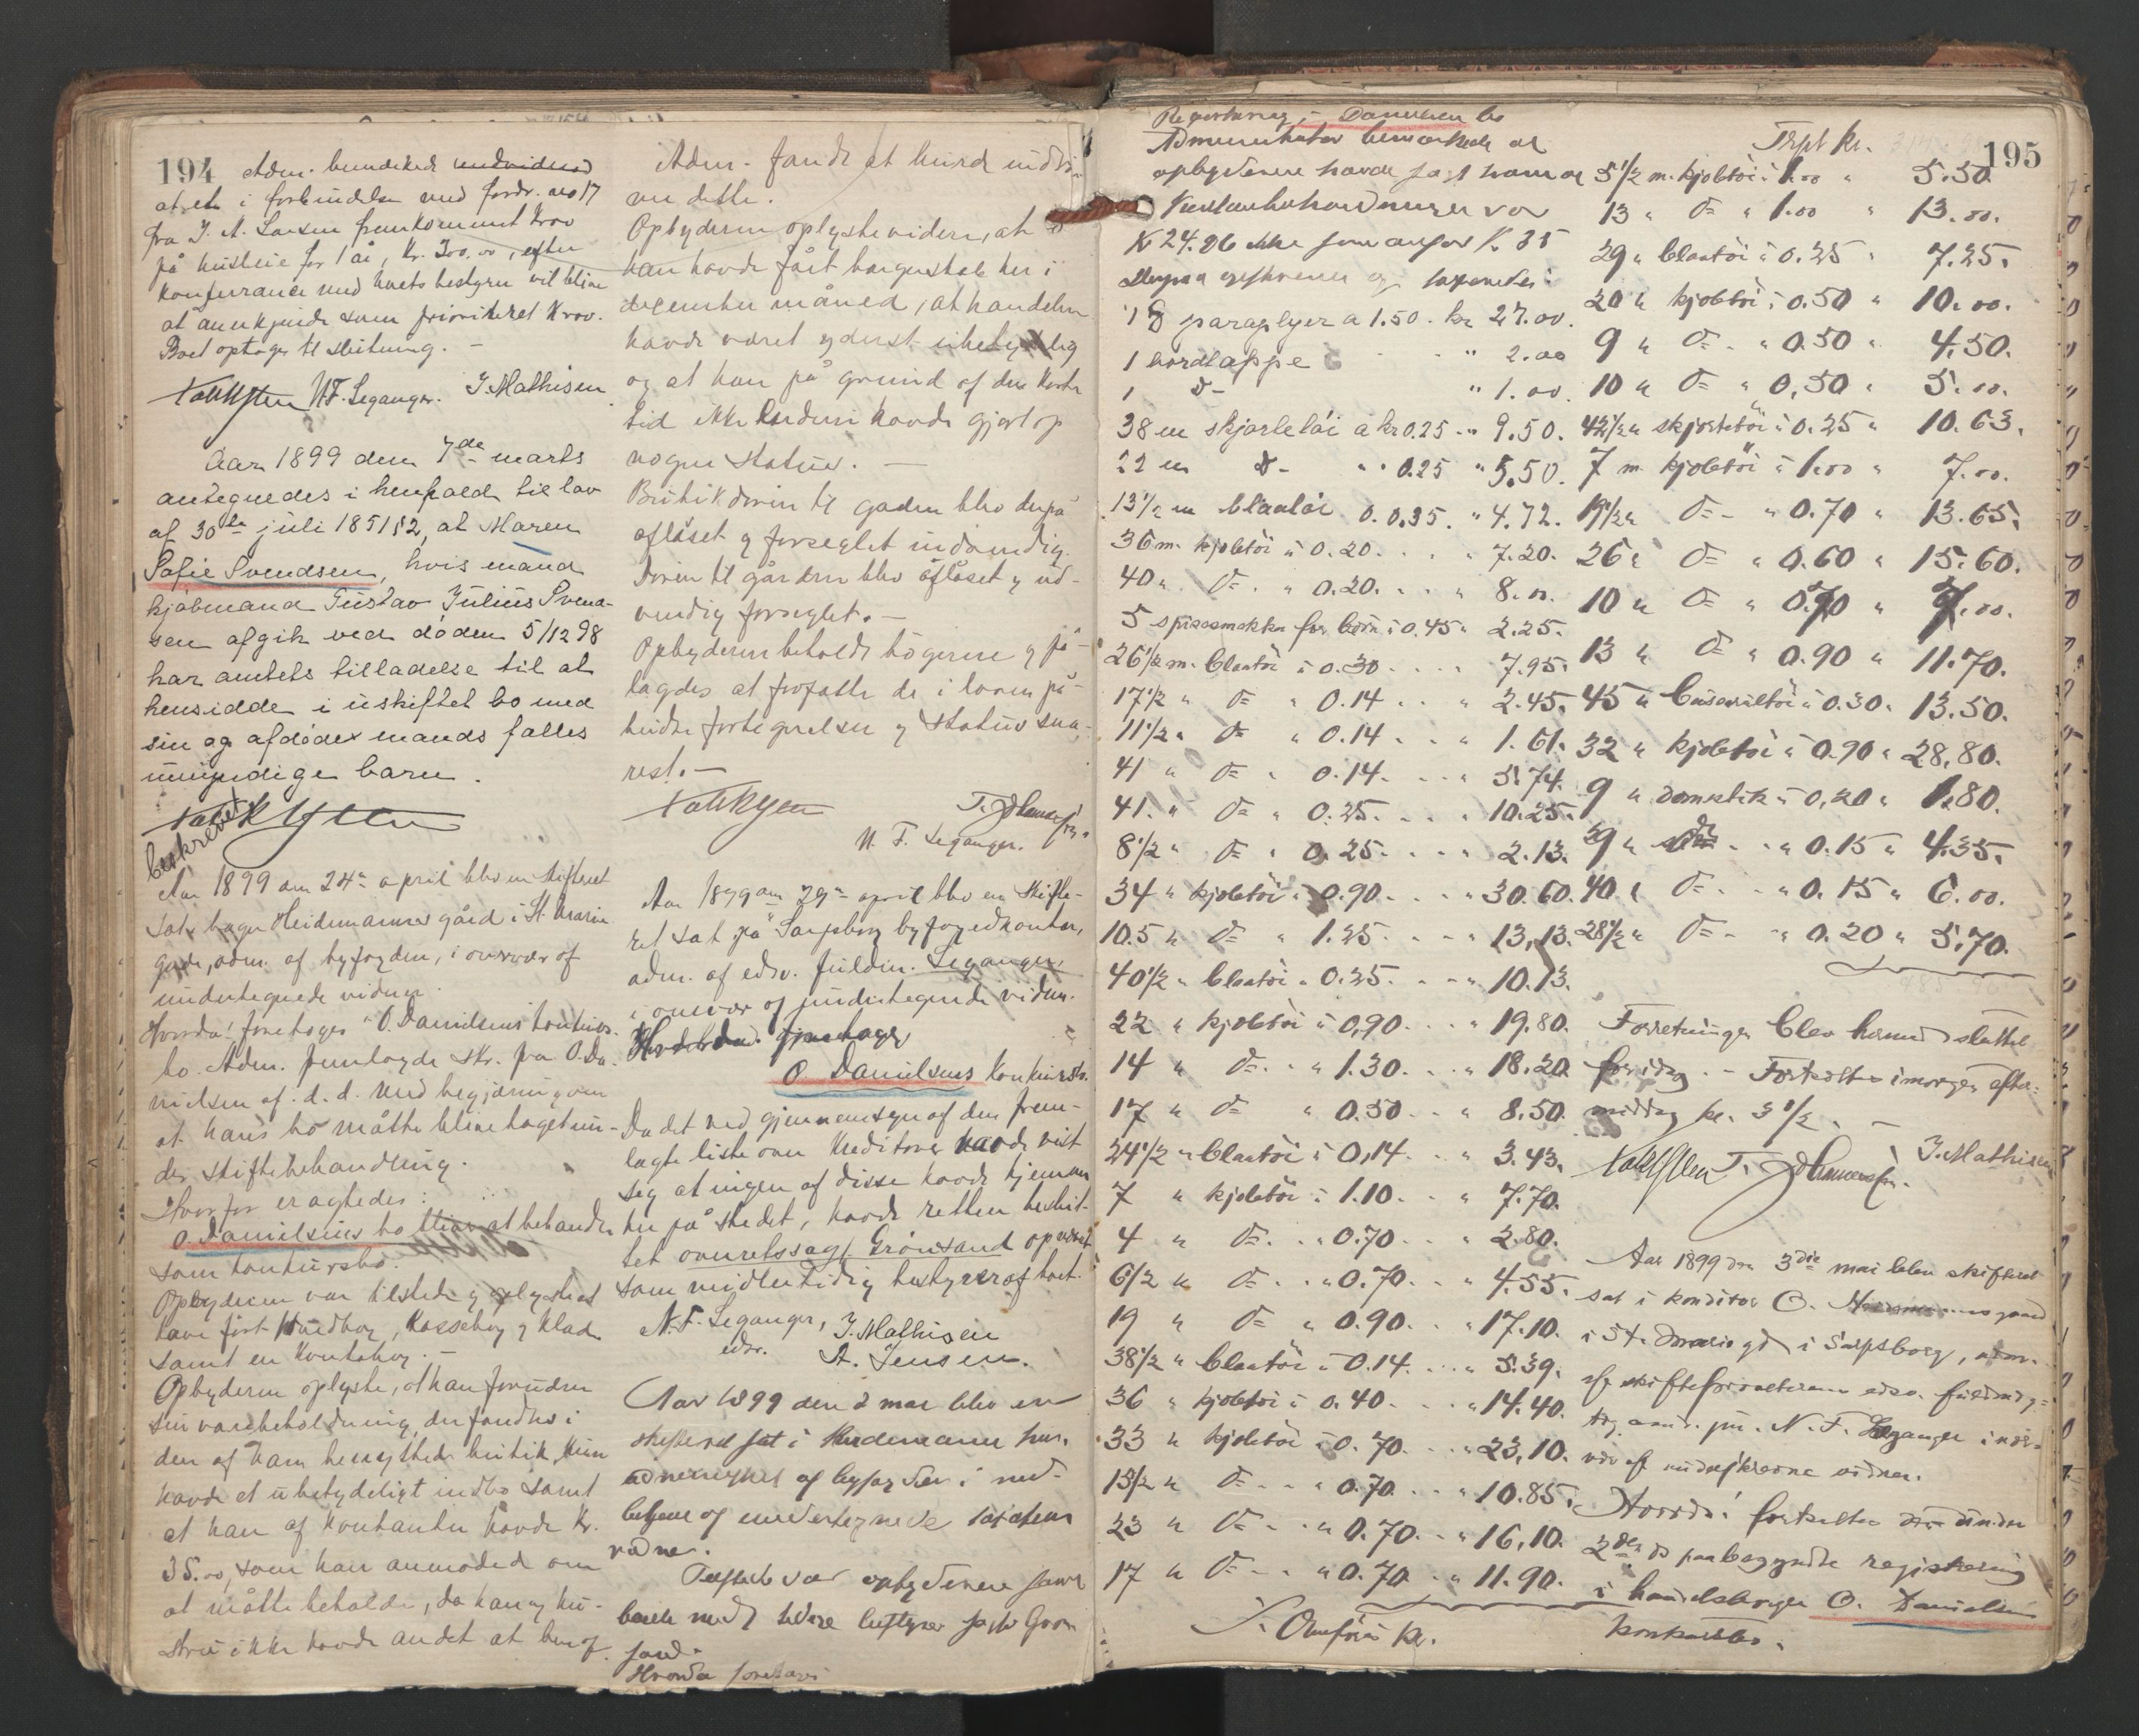 194
Adm. bemærked
at et i forbindelse med fordr. no 17
fra J. A. Larsen fremkommet krav
på husleie for 1 år, kr. 300.00, efter
konferance med boets bestyrer vil blive
at anerkjende som prioriteret krav.
Boet optages til slutning. -
N.F. Leganger. J. Mathisen
Aar 1899 den 7de marts
antegnedes i henhold til lov
af 30te juli 1851 § 2, at Maren
Sofie Svendsen, hvis mand
kjøbmand Gustav Julius Svend-
sen afgik ved døden 5/12 98
har amtets tilladelse til at
hensidde i uskiftet bo med
sin og afdødes mands fælles
umyndige barn.
beskrevet
Aar 1899 den 24de april blev en skifteret
sat i bager Heidemanns gård i St. Marie
gade, adm. af byfogden, i overvær af
undertegnede vidner.
Hvorda! foretoges O. Danielsens konkurs-
bo. Adm. fremlagde skr. fra O. Da-
nielsen af d. d. med begjæring om
at hans bo måtte blive taget un-
der skiftebehandling.
Hvorfor eragtedes:
O. Danielsens bo bliver at behandle
som konkursbo.
Opbyderen var tilstede og oplyste at
have ført hovedbog, kassebog og klad
samt en kontobog. -
Opbyderen oplyste, at han foruden
sin varebeholdning, der fandtes i
den af ham benyttede butik, kun
havde et ubetydeligt indbo samt
at han af kontanter havde kr.
35.00, som han anmoded om
at måtte beholde, da han og hu-
stru ikke havde andet at leve af.
Adm. fandt at burde indrøm-
me dette.
Opbyderen oplyste videre, at
han havde fået borgerskab her i
december måned, at handelen
havde været yderst ubetydelig
og at han på grund af den korte
tid ikke endnu havde gjort op
nogen status. -
Butikdøren til gaden blev derpå
aflåset og forseglet indvendig.
Døren til gården blev aflåset og ud-
vendig forseglet. -
Opbyderen beholdt bøgerne og på-
lagdes at forfatte de i loven på-
budte fortegnelser og status sna-
rest. -
N. F. Leganger.
Aar 1899 den 29de april blev en skifte-
ret sat på Sarpsborg byfogedkontor,
adm. af edsv. fuldm. Leganger,
i overvær af undertegnede vidner.
Hvorda! foretoges
O. Danielsens konkursbo.
Da det ved gjennemsyn af den frem-
lagte liste over kreditorer havde vist
sig at ingen af disse havde hjemme
her på stedet, havde retten beslut-
tet overretssagf. Grønsand opnævnt
som midlertidig bestyrer af boet.
N. F. Leganger, J. Mathisen
edsv. A. Jensen.
Aar 1899 den 2 mai blev en
skifteret sat i Heidemanns hus,
administreret af byfogden i med-
betjene og undertegnede taxations
vidne.
Tilstede var opbyderen samt
boets midlertidige bestyrer sagf. Grøn
sand.
Hvorda foretoges
195
Registrering i Danielsens bo
Administrator bemærkede at
opbyderen havde sagt ham at
Kontantbeholdningen var
Kr 24.26 ikke som anført Kr. 35
Derpaa opskreves og taxeredes:
18 paraplyer a 1.50. kr 27.00.
1 bordlappe " 2.00
1 do " 1.00.
38 m skjortetøi a kr 0.25 " 9.50.
22 m do " 0.25 " 5.50.
13 1/2 m blaatøi 0.0.35. " 4.72.
36 m. kjoletøi á 0.20. " 7.20.
40 " do " 0.20. " 8.00.
5 spisesmække for børn á 0.45 " 2.25.
26 1/2 m. blaatøi á 0.30 7.95.
17 1/2 " do " 0.14 " 2.45.
11 1/2 " do " 0.14 " 1.61.
41 " do " 0.14. " 5.74.
41. " do " 0.25. " 10.25.
8 1/2 " do " 0.25. " 2.13.
34 " kjoletøi á 0.90. " 30.60.
10.5 " do " 1.25. " 13,13.
40 1/2 " blaatøi " 0.25. " 10.13.
22 " kjoletøi á 0,90. " 19.80.
14 " do " 1.30. " 18.20.
17 " do " 0.50. " 8.50.
24 1/2 " blaatøi á 0,14. " 3.43.
7 " kjoletøi á 1.10. " 7.70.
4 " do " 0.70. " 2.80.
6 1/2 " do " 0.70. " 4.55.
19 " do " 0.90. " 17.10.
38 1/2 " blaatøi á 0.14. " 5.39.
36 " kjoletøi á 0.40. " 14.40.
33 " kjoletøi á 0.70. " 23,10.
15 1/2 " do " 0.70. " 10.85.
23 " do " 0.70. " 16,10.
17 " do " 0.70. " 11.90.
Kr.
Trspt kr.
5 1/2 m. kjoletøi á 1.00 " 5.50.
13 " do " 1.00 " 13.00.
29 " blaatøi á 0.25 " 7.25.
20 " kjoletøi á 0.50 " 10.00.
9 " do " 0.50 " 4.50.
10 " do " 0,50 " 5.00.
42 1/2 " skjortetøi á 0.25 " 10.63.
7 m. kjoletøi á 1.00 " 7.00.
19 1/2 " do " 0.70 " 13.65.
26 " do " 0.60 " 15.60.
10 " do " 0.70 " 7.00.
13 " do " 0.90 " 11.70.
45 " buserultøi á 0.30 " 13.50.
32 " kjoletøi á 0.90 " 28,80.
9 " domestik á 0,20 " 1.80.
29 " do " 0.15 " 4.35.
40 " do " 0.15 " 6.00.
28 1/2 " do " 0.20 " 5,70.
Forretningen blev hermed sluttet
for idag. - Fortsættes imorgen efter-
middag kl. 3 1/2. -
J. Mathisen
Aar 1899 den 3die mai blev skifteret
sat i konditor O. gaard
i St. Marie gd i Sarpsborg, adm.
af skifteforvalterens edsv. fuldmæg-
tig, cand. jur. N. F. Leganger i nær-
vær af undertegnede vidner.
Hvorda! fortsattes den under
2den ds paabegyndte registrering
i handelsborger O. Danielsens
konkursbo.